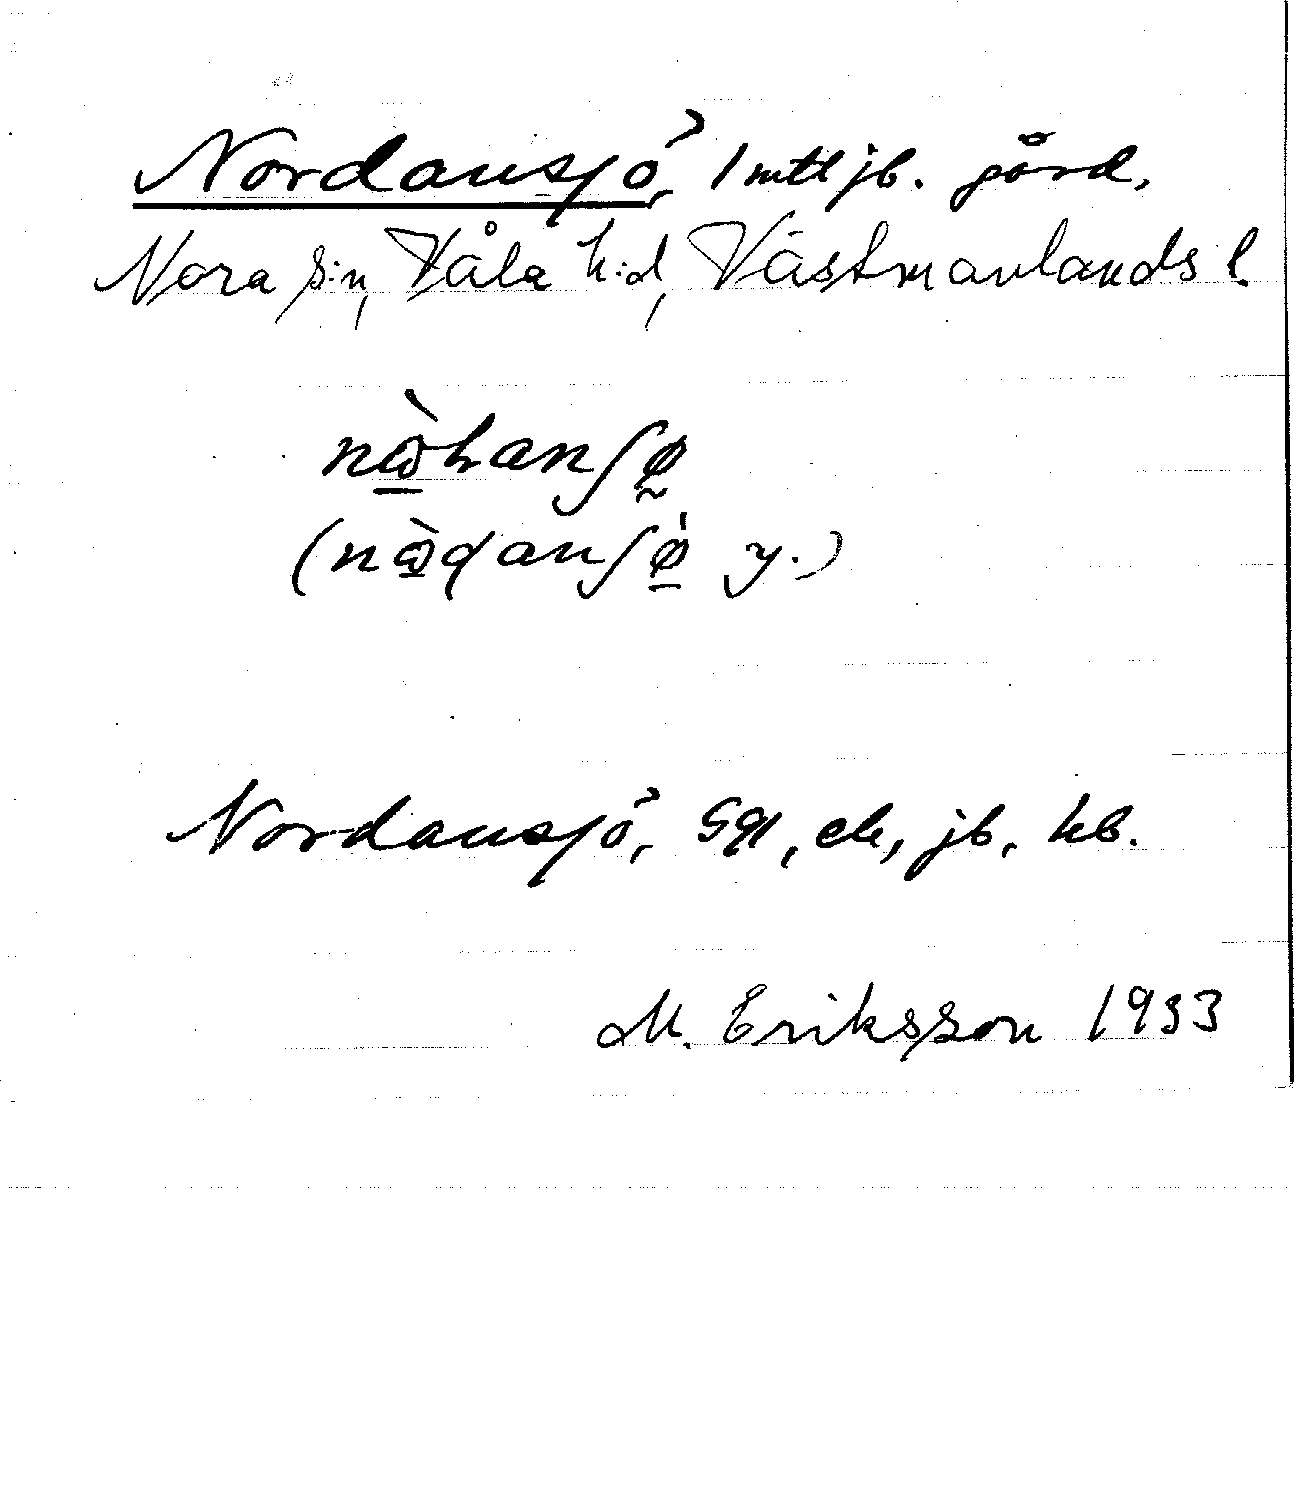 Nordansjö, 1 mtl jb. gård,
Nora s:n, Våla h:d, Västmanlands l.
(y.)
Nordansjö, Gql, ek, jb, hb.
M. Eriksson 1933